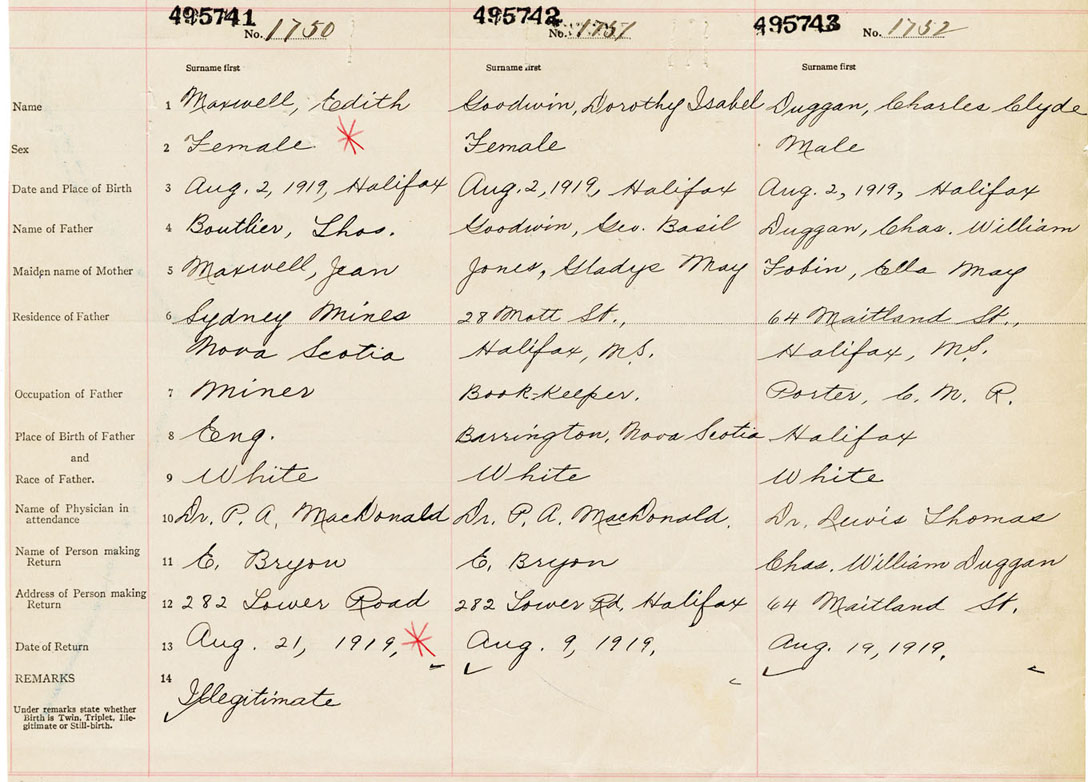 495741 495742 495743
No. 1750 No. 1751 No. 1752
Surname first Surname first Surname first
Name 1 Maxwell, Edith Goodwin, Dorothy Isabel Duggan, Charles Clyde
Sex 2 Female Female Male
Date and Place of Birth 3 Aug. 2, 1919, Halifax Aug. 2, 1919, Halifax Aug. 2, 1919, Halifax
Name of Father 4 Boutlier, Thos. Goodwin, Geo. Basil Duggan, Chas. William
Maiden name of Mother 5 Maxwell, Jean Jones, Gladys May Tobin, Ella May
Residence of Father 6 Sydney Mines 28 Mott St., 64 Maitland St.,
Nova Scotia Halifax, N.S. Halifax, N.S.
Occupation of Father 7 Miner Book-keeper. Porter, C. N. R.
Place of Birth of Father 8 Eng. Barrington, Nova Scotia Halifax
and
Race of Father. 9 White White White
Name of Physician in
attendance 10 Dr. P. A. MacDonald Dr. P. A. MacDonald. Dr. Lewis Thomas
Name of Person making
Return 11 E. Bryon E. Bryon Chas. William Duggan
Address of Person making
Return 12 282 Lower Road 282 Lower Rd, Halifax 64 Maitland St.
Date of Return 13 Aug. 21, 1919, Aug. 9, 1919. Aug. 19, 1919.
REMARKS 14
Illegitimate
Under remarks state whether
Birth is Twin, Triplet, Ille-
gitimate or Still-birth.